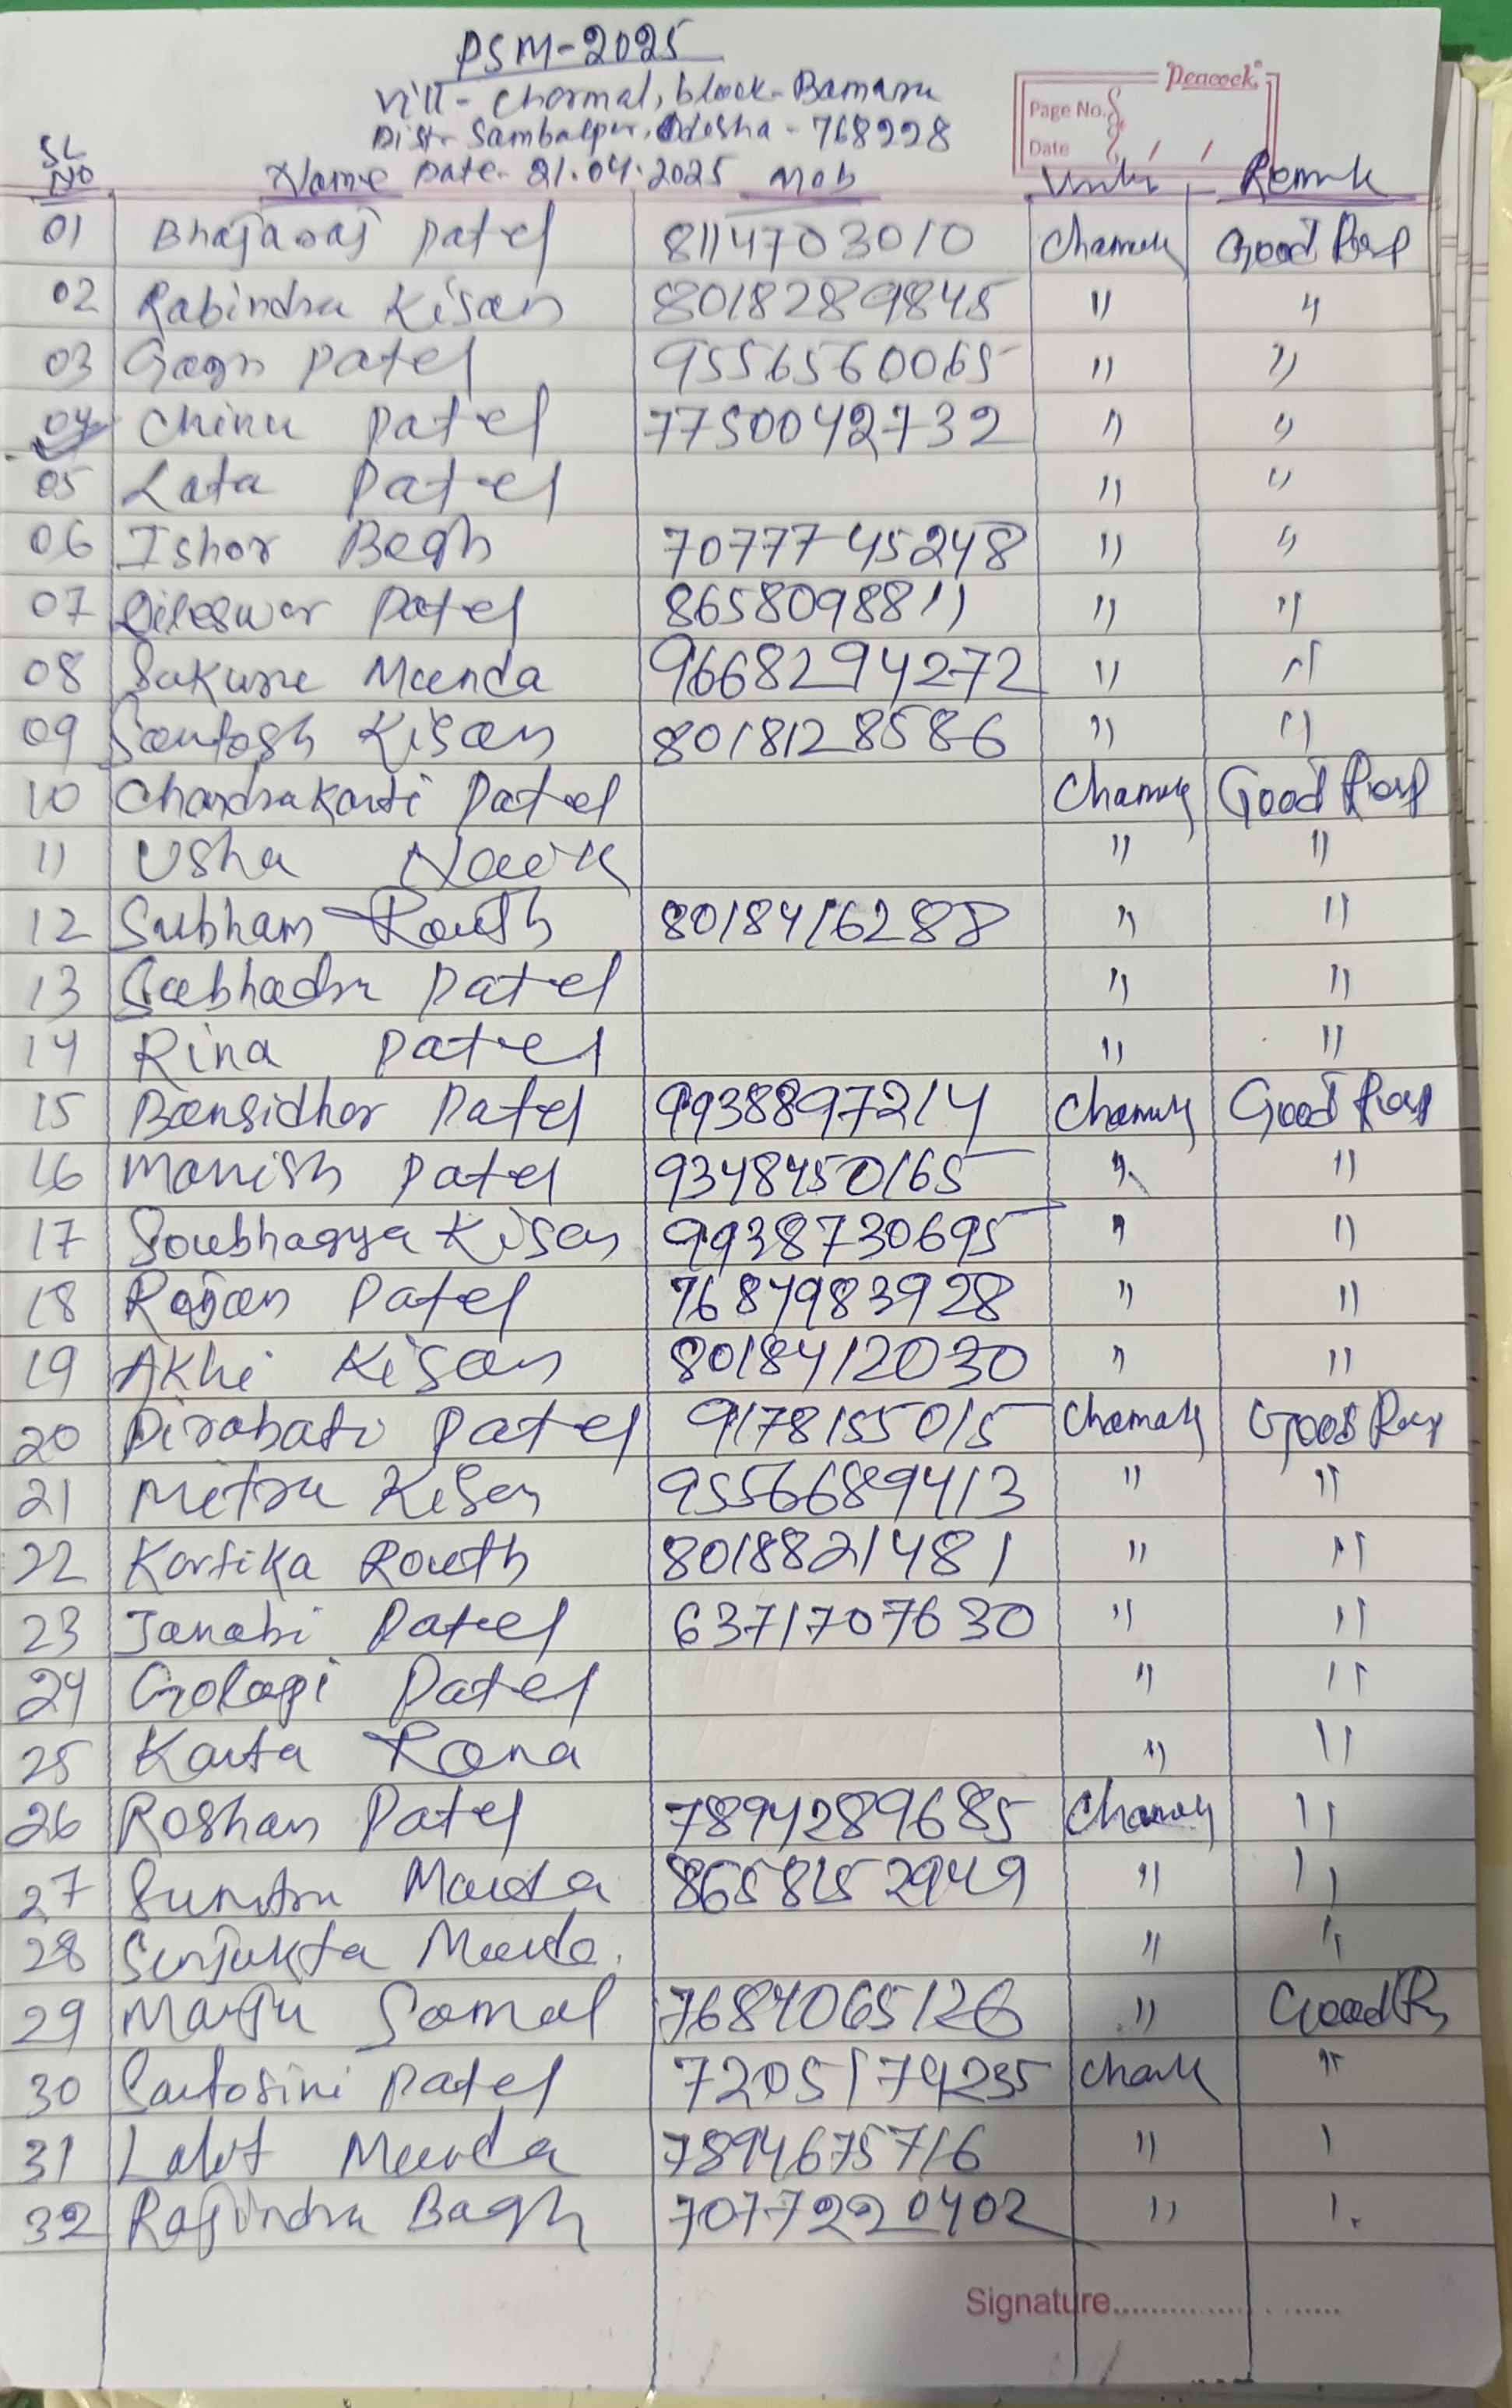 PSM-2025
Vill- Charmal, block- Bamara
Dist- Sambalpur, Odisha - 768228
Peacock
Page No.
Date / /
SL NO Name Date- 21.04.2025 Mob Remark
01 Bhajaraj Patel 8114703010 Good Resp
02 Rabindra Kisan 8018289845 " "
03 Gagn Patel 9556560065 " "
04 Chinu Patel 7750042732 " "
05 Lata Patel " "
06 Ishor Bagh 7077745248 " "
07 Dileswar Patel 8658098811 " "
08 Sakura Munda 9668294272 " "
09 Santosh Kisan 8018128586 " "
10 Chandrakanti Patel Good Resp
11 Usha Naik " "
12 Subham Routh 8018416288 " "
13 Subhadra Patel " "
14 Rina Patel " "
15 Bansidhar Patel 9938897214 Good Resp
16 Manish Patel 9348450165 " "
17 Soubhagya Kisan 9938730695 " "
18 Rajan Patel 7684983928 " "
19 Akhi Kisan 8018412030 " "
20 Dirabati Patel 9178155015 Good Resp
21 Mitra Kisan 9556689413 " "
22 Kartika Routh 8018821481 " "
23 Janabi Patel 6371707630 " "
24 Golapi Patel " "
25 Kanta Rana " "
26 Roshan Patel 7894289685 "
27 Sumitra Munda 8658152949 " "
28 Sunjukta Munda " "
29 Manju Samal 7684065126 " Good
30 Santosini Patel 7205174235 "
31 Lalit Munda 7894675716 "
32 Rajindra Bagh 7077220402 "
Signature